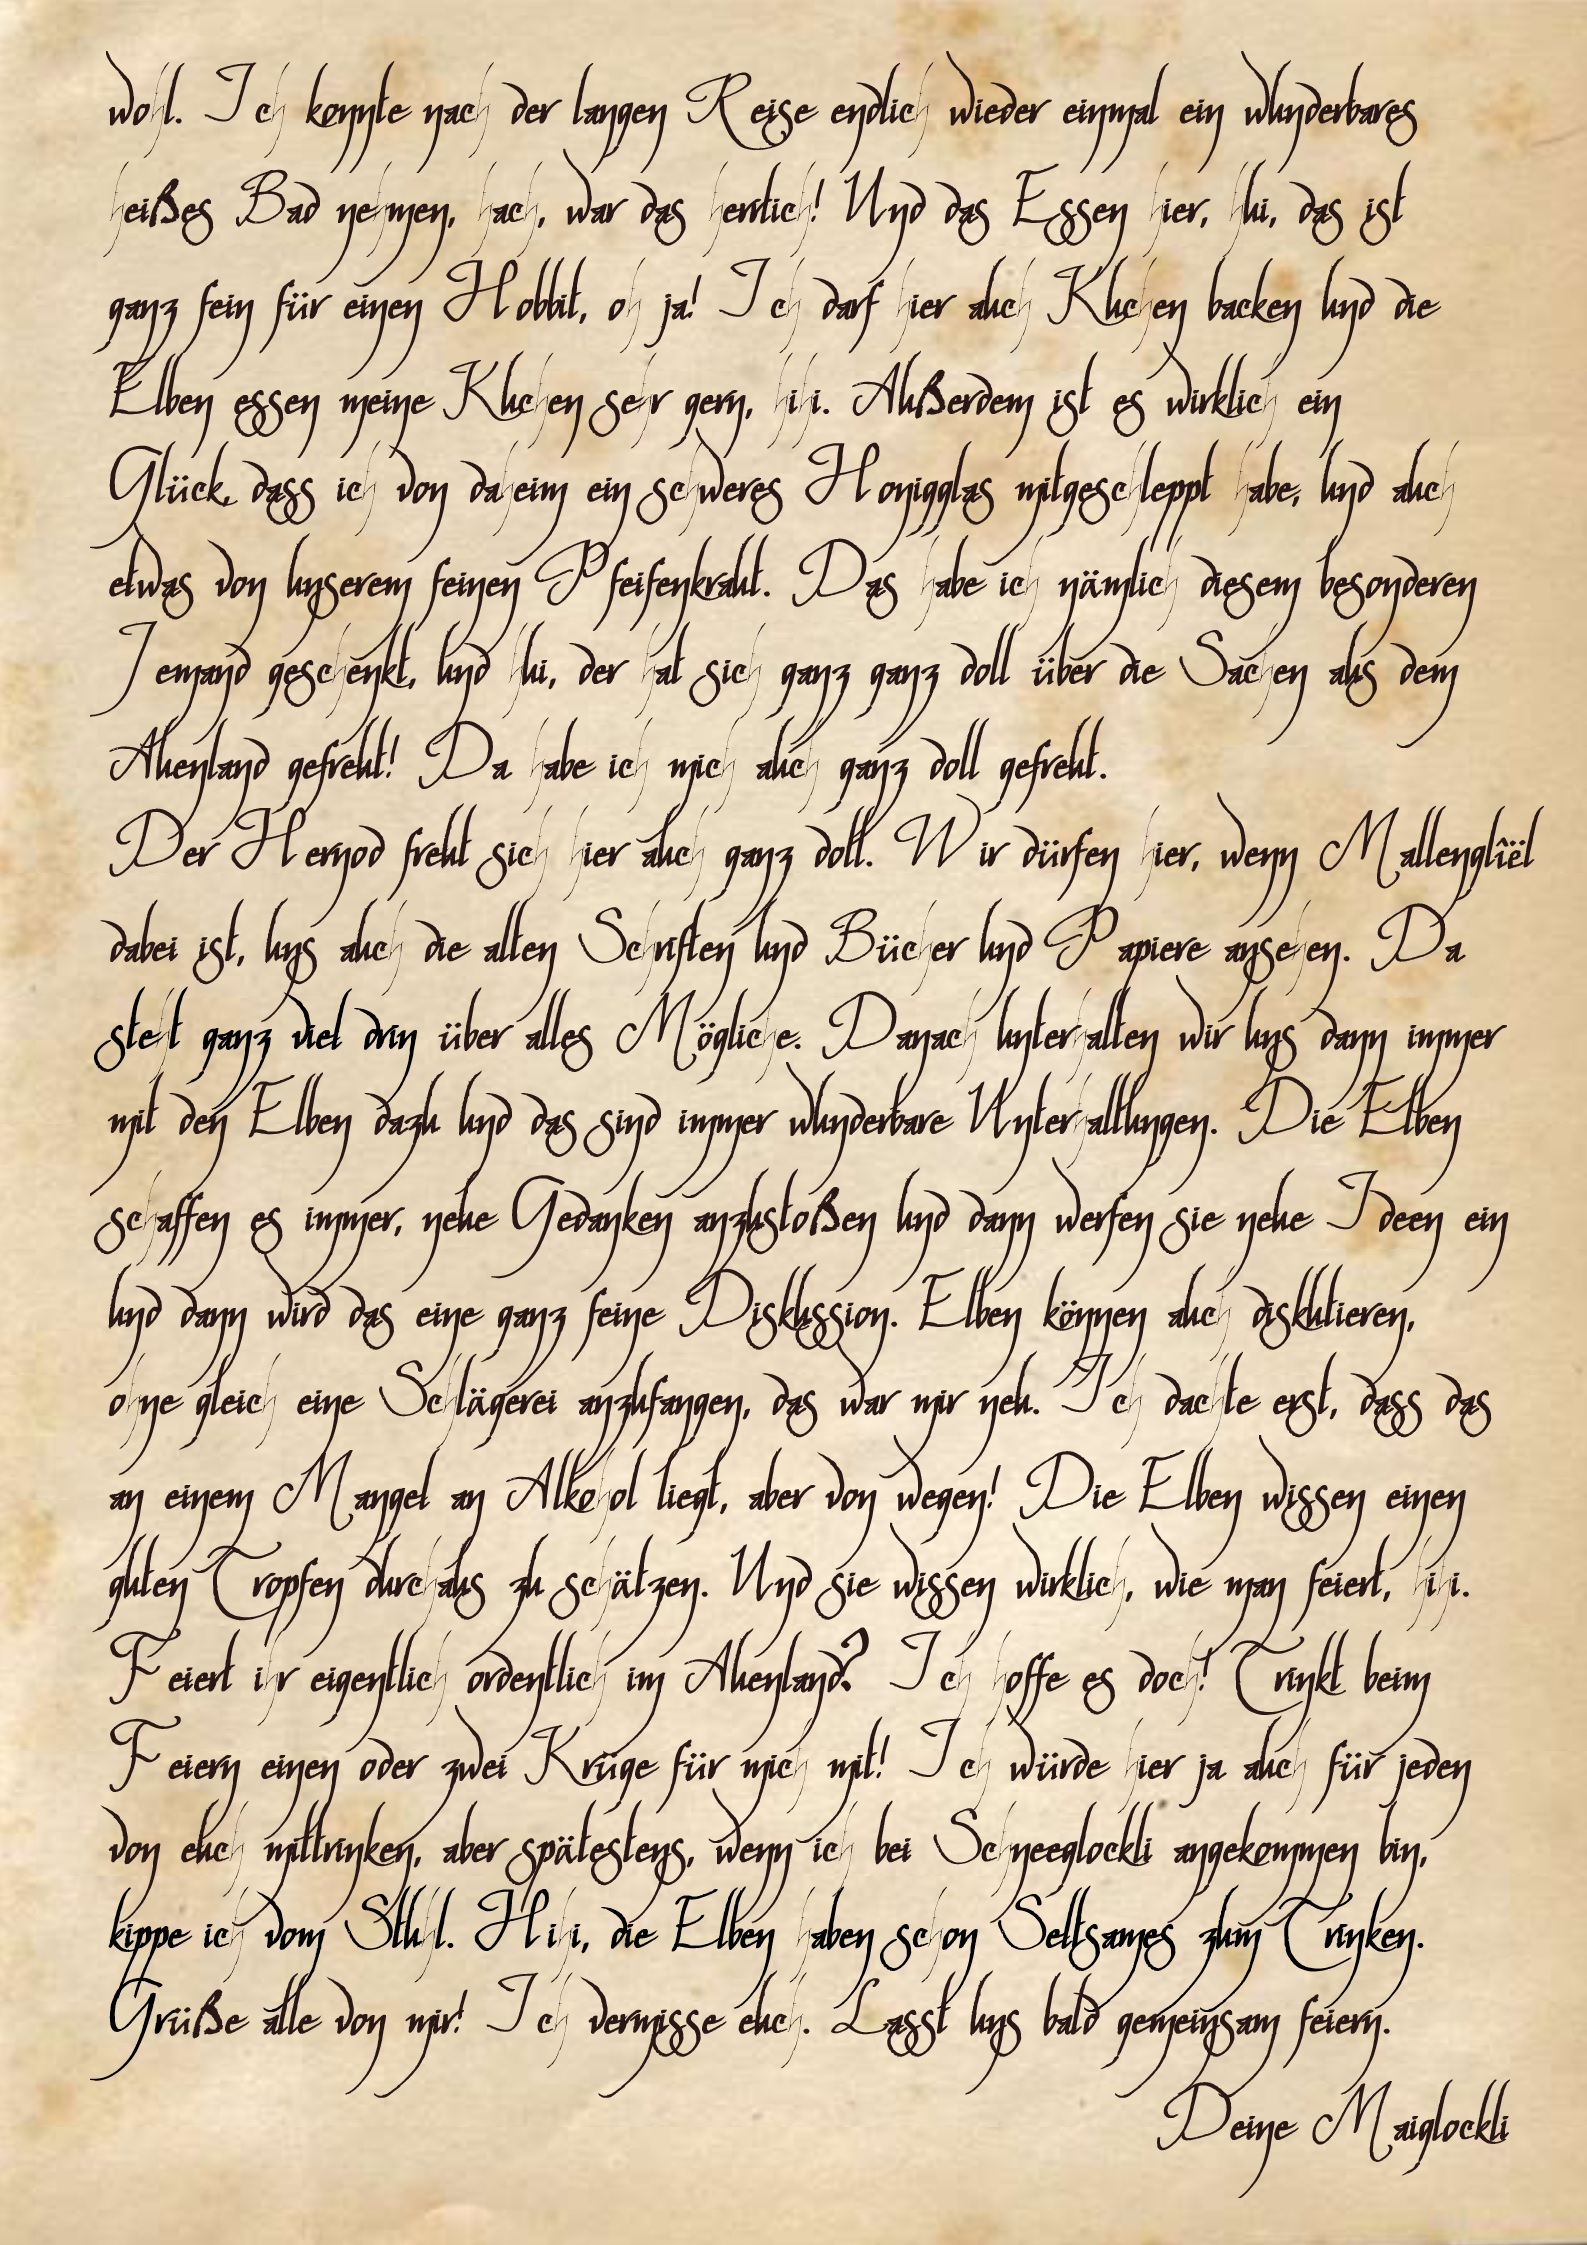 wohl. Ich konnte nach der langen Reise endlich wieder einmal ein wunderbares
heißes Bad nehmen, hach, war das herrlich! Und das Essen hier, hui, das ist
ganz fein für einen Hobbit, oh ja! Ich darf hier auch Kuchen backen und die
Elben essen meine Kuchen sehr gern, hihi. Außerdem ist es wirklich ein
Glück, dass ich von daheim ein schweres Honigglas mitgeschleppt habe, und auch
etwas von unserem feinen Pfeifenkraut. Das habe ich nämlich diesem besonderen
Jemand geschenkt, und hui, der hat sich ganz ganz doll über die Sachen aus dem
Auenland gefreut! Da habe ich mich auch ganz doll gefreut.
Der Hernod freut sich hier auch ganz doll. Wir dürfen hier, wenn Mallenglîël
dabei ist, uns auch die alten Schriften und Bücher und Papiere ansehen. Da
steht ganz viel drin über alles Mögliche. Danach unterhalten wir uns dann immer
mit den Elben dazu und das sind immer wunderbare Unterhaltungen. Die Elben
schaffen es immer, neue Gedanken anzustoßen und dann werfen sie neue Ideen ein
und dann wird das eine ganz feine Diskussion. Elben können auch diskutieren,
ohne gleich eine Schlägerei anzufangen, das war mir neu. Ich dachte erst, dass das
an einem Mangel an Alkohol liegt, aber von wegen! Die Elben wissen einen
guten Tropfen durchaus zu schätzen. Und sie wissen wirklich, wie man feiert, hihi.
Feiert ihr eigentlich ordentlich im Auenland? Ich hoffe es doch! Trinkt beim
Feiern einen oder zwei Krüge für mich mit! Ich würde hier ja auch für jeden
von euch mittrinken, aber spätestens, wenn ich bei Schneeglockli angekommen bin,
kippe ich vom Stuhl. Hihi, die Elben haben schon Seltsames zum Trinken.
Grüße alle von mir! Ich vermisse euch. Lasst uns bald gemeinsam feiern.
Deine Maiglockli